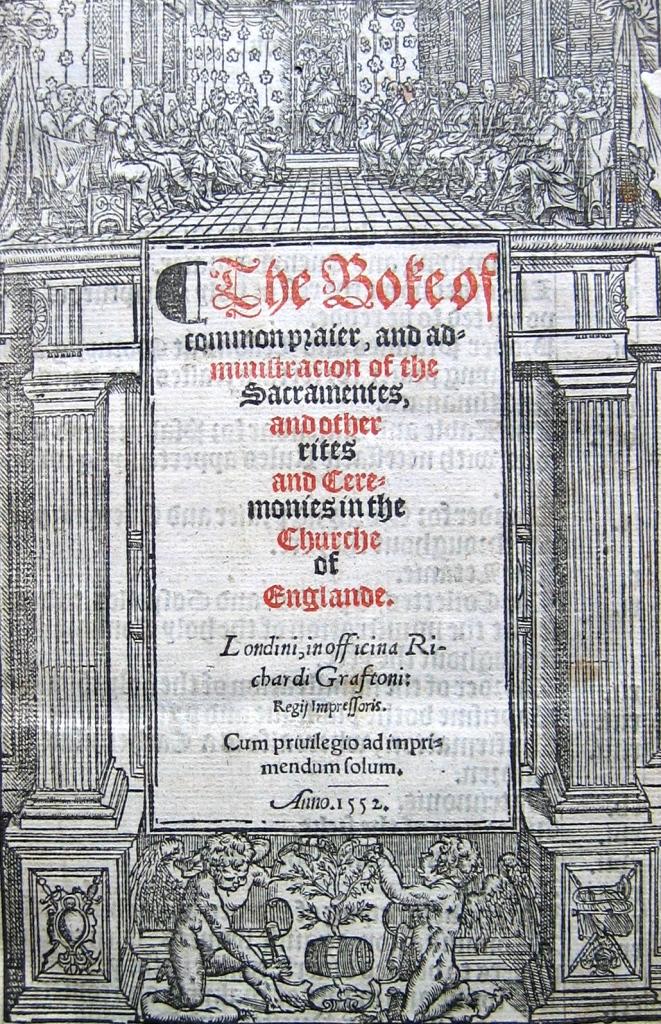 The Boke of
common praier, and ad-
ministracion of the
Sacramentes,
and other
rites
and Cere-
monies in the
Churche
of
Englande.
Londini, in officina Ri-
chardi Graftoni:
Regij Impreſſoris.
Cum priuilegio ad impri-
mendum ſolum.
Anno. 1552.